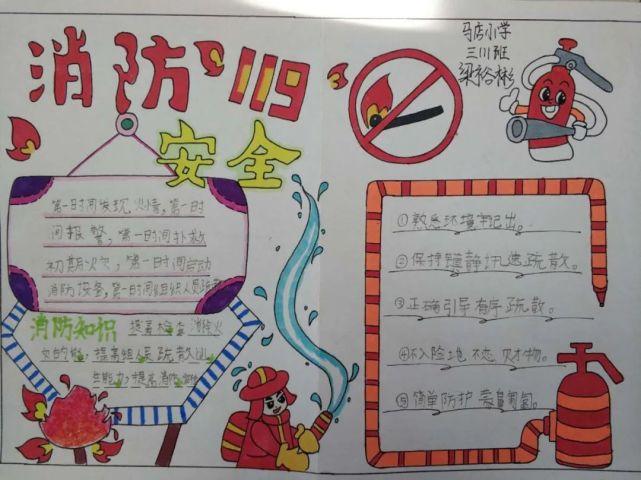 消防119
安全
马店小学
三川班
梁裕彬
第一时间发现火情,第一时
间报警,第一时间扑救
初期火灾,第一时间启动
消防设备,第一时间组织人员疏散
消防知识 提高检查消除火
灾的能,提高组织疏散逃
生能力,提高消防
①熟悉环境牢记出。
②保持镇静迅速疏散。
③正确引导有序疏散。
④不入险地不恋财物。
⑤简单防护匍匐。